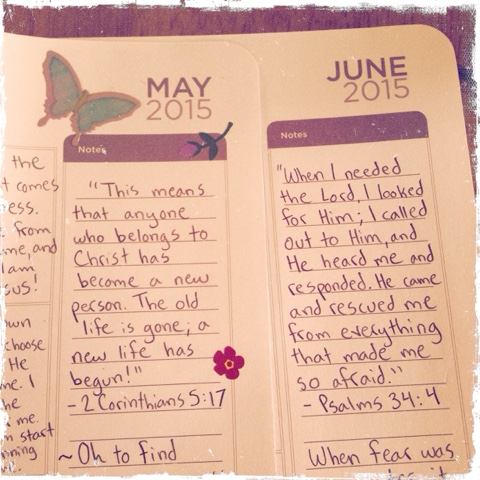 the
t comes
ess.
from
me, and
I am
sus!
own
choose
He
me. I
he
me.
n start
nning
MAY
2015
Notes
"This means
that anyone
who belongs to
Christ has
become a new
person. The old
life is gone; a
new life has
begun!"
- 2 Corinthians 5:17
~ Oh to find
JUNE
2015
Notes
"When I needed
the Lord, I looked
for Him; I called
out to Him, and
He heard me and
responded. He came
and rescued me
from everything
that made me
so afraid."
- Psalms 34:4
When fear was